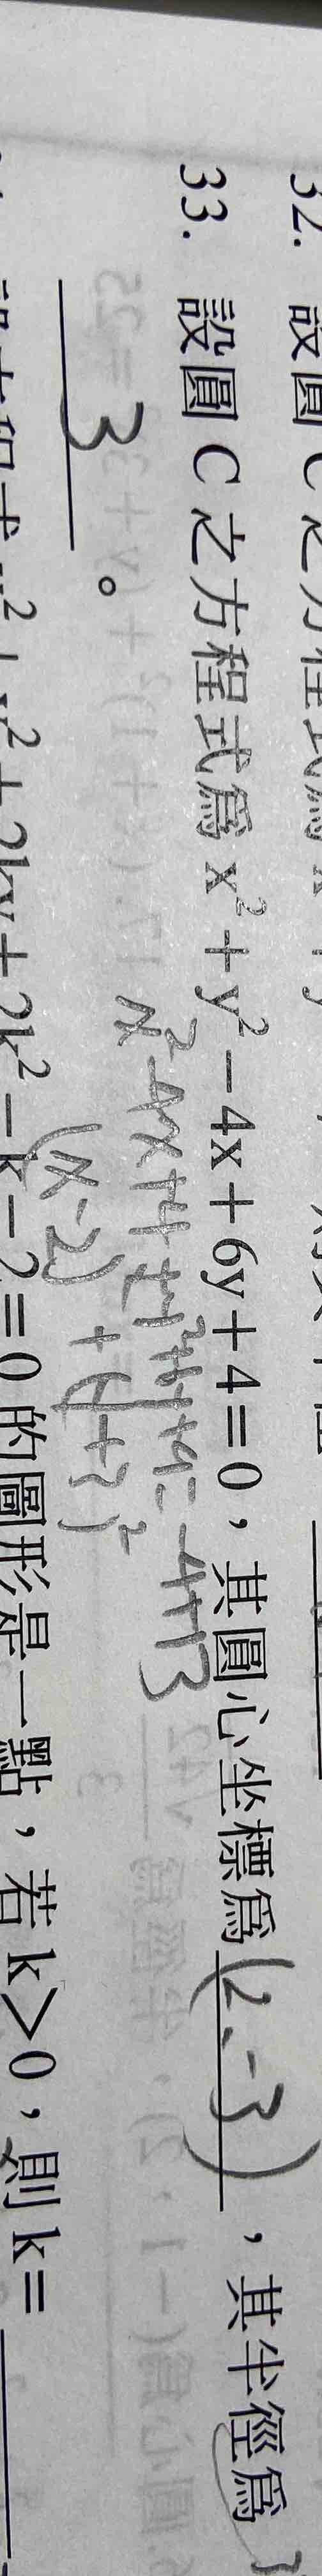 32. 設圓 C 之方程式為
33. 設圓 C 之方程式為 x² + y² − 4x + 6y + 4 = 0，其圓心坐標為 (2, -3)，其半徑為
3。
x² - 4x + 4 + y² + 6y + 9 = -4+13
(x-2) + (y+3)²
x² + y² + 2kx + 2k² − k − 2 = 0 的圖形是一點，若 k > 0，則 k =